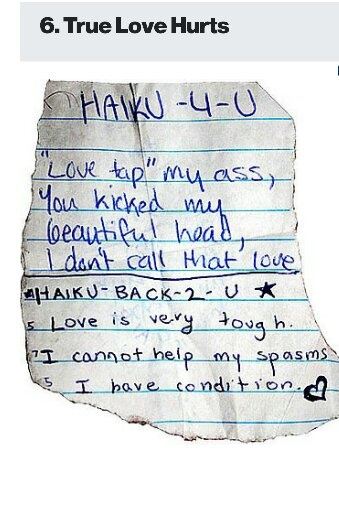 6. True Love Hurts
HAIKU -4-U
"Love tap" my ass,
You kicked my
beautiful head,
I don't call that love
★HAIKU-BACK-2-U ★
5 Love is very tough.
7 I cannot help my spasms
5 I have condition. ♡